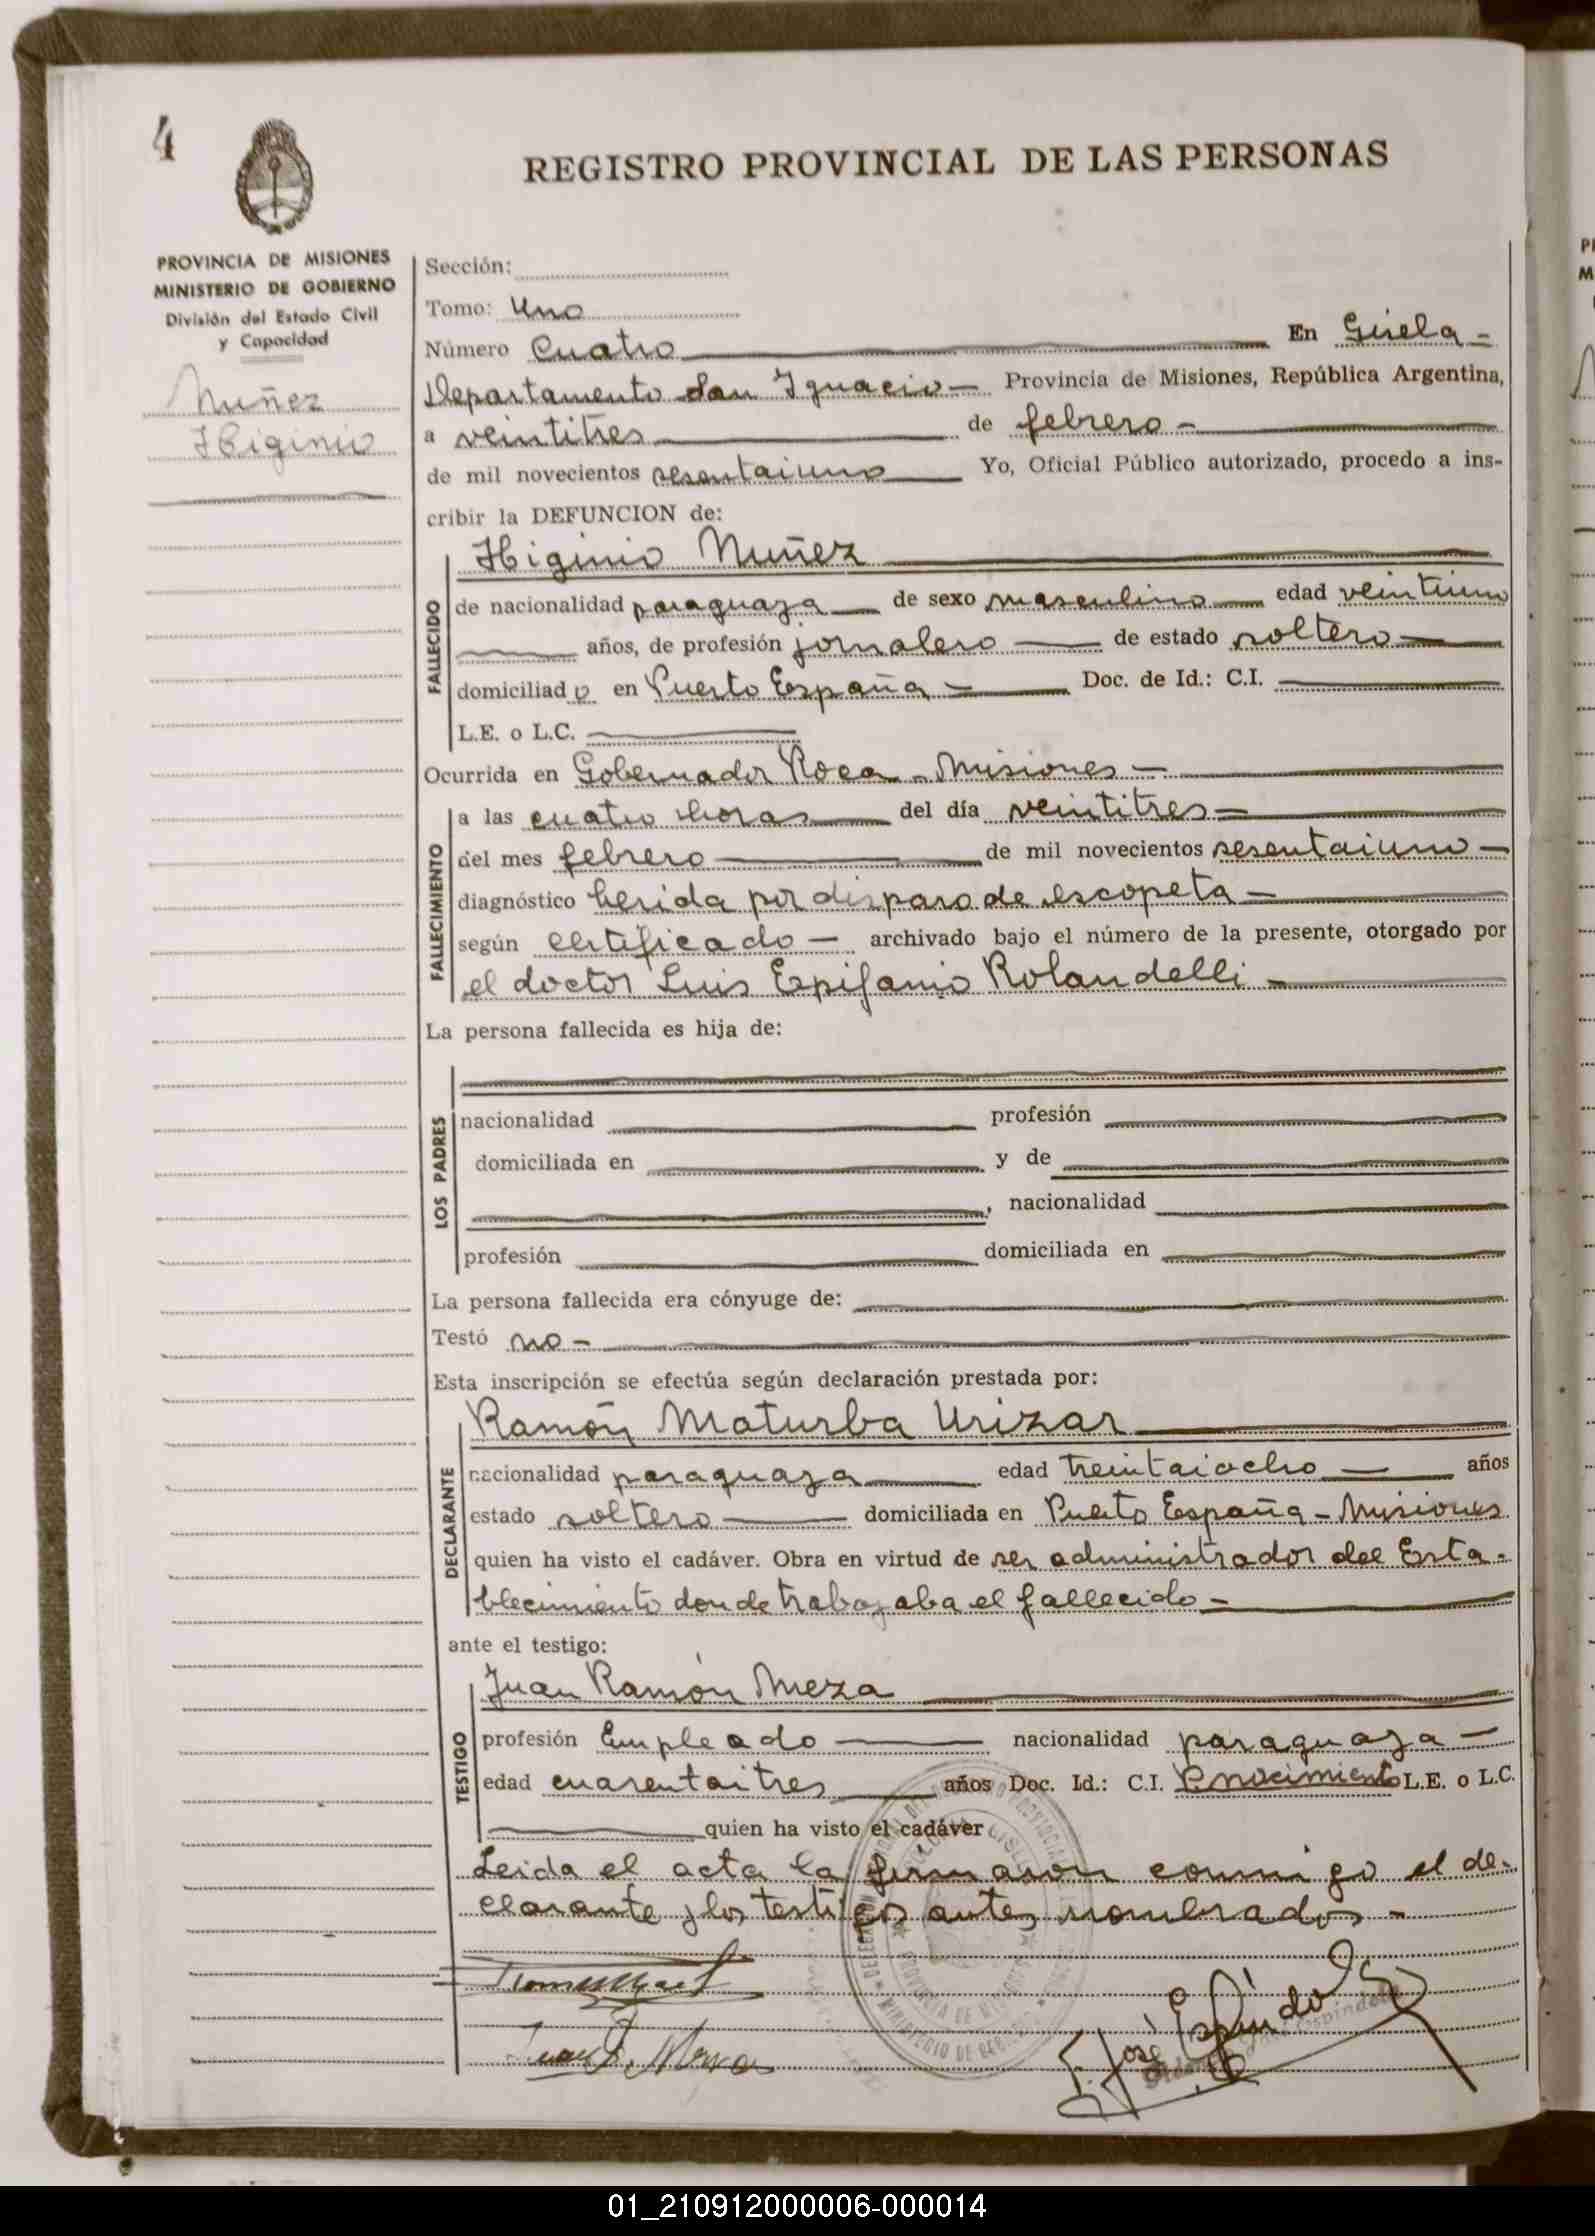 4
REGISTRO PROVINCIAL DE LAS PERSONAS
PROVINCIA DE MISIONES
MINISTERIO DE GOBIERNO
División del Estado Civil
y Capacidad
Nuñez
Higinio
Sección:
Tomo: Uno
Número Cuatro En Gisela
Departamento San Ignacio Provincia de Misiones, República Argentina,
a veintitres de febrero
de mil novecientos sesentaiuno Yo, Oficial Público autorizado, procedo a ins-
cribir la DEFUNCION de:
FALLECIDO
Higinio Nuñez
de nacionalidad paraguaya de sexo masculino edad veintiuno
años, de profesión jornalero de estado soltero
domiciliado en Puerto España Doc. de Id.: C.I.
L.E. o L.C.
Ocurrida en Gobernador Roca - Misiones
FALLECIMIENTO
a las cuatro horas del día veintitres
del mes febrero de mil novecientos sesentaiuno
diagnóstico herida por disparo de escopeta
según certificado archivado bajo el número de la presente, otorgado por
el doctor Luis Epifanio Rolandelli
La persona fallecida es hija de:
LOS PADRES
nacionalidad profesión
domiciliada en y de
, nacionalidad
profesión domiciliada en
La persona fallecida era cónyuge de:
Testó no
Esta inscripción se efectúa según declaración prestada por:
DECLARANTE
Ramón Maturba Urizar
nacionalidad paraguaya edad treintaiocho años
estado soltero domiciliada en Puerto España - Misiones
quien ha visto el cadáver. Obra en virtud de ser administrador del Esta-
blecimiento donde trabajaba el fallecido
ante el testigo:
TESTIGO
Juan Ramón Meza
profesión Empleado nacionalidad paraguaya
edad cuarentaitres años Doc. Id.: C.I. Conocimiento L.E. o L.C.
quien ha visto el cadáver
Leida el acta la firmaron conmigo el de-
clarante y los testigos antes nombrados.
José Espíndola
01_210912000006-000014